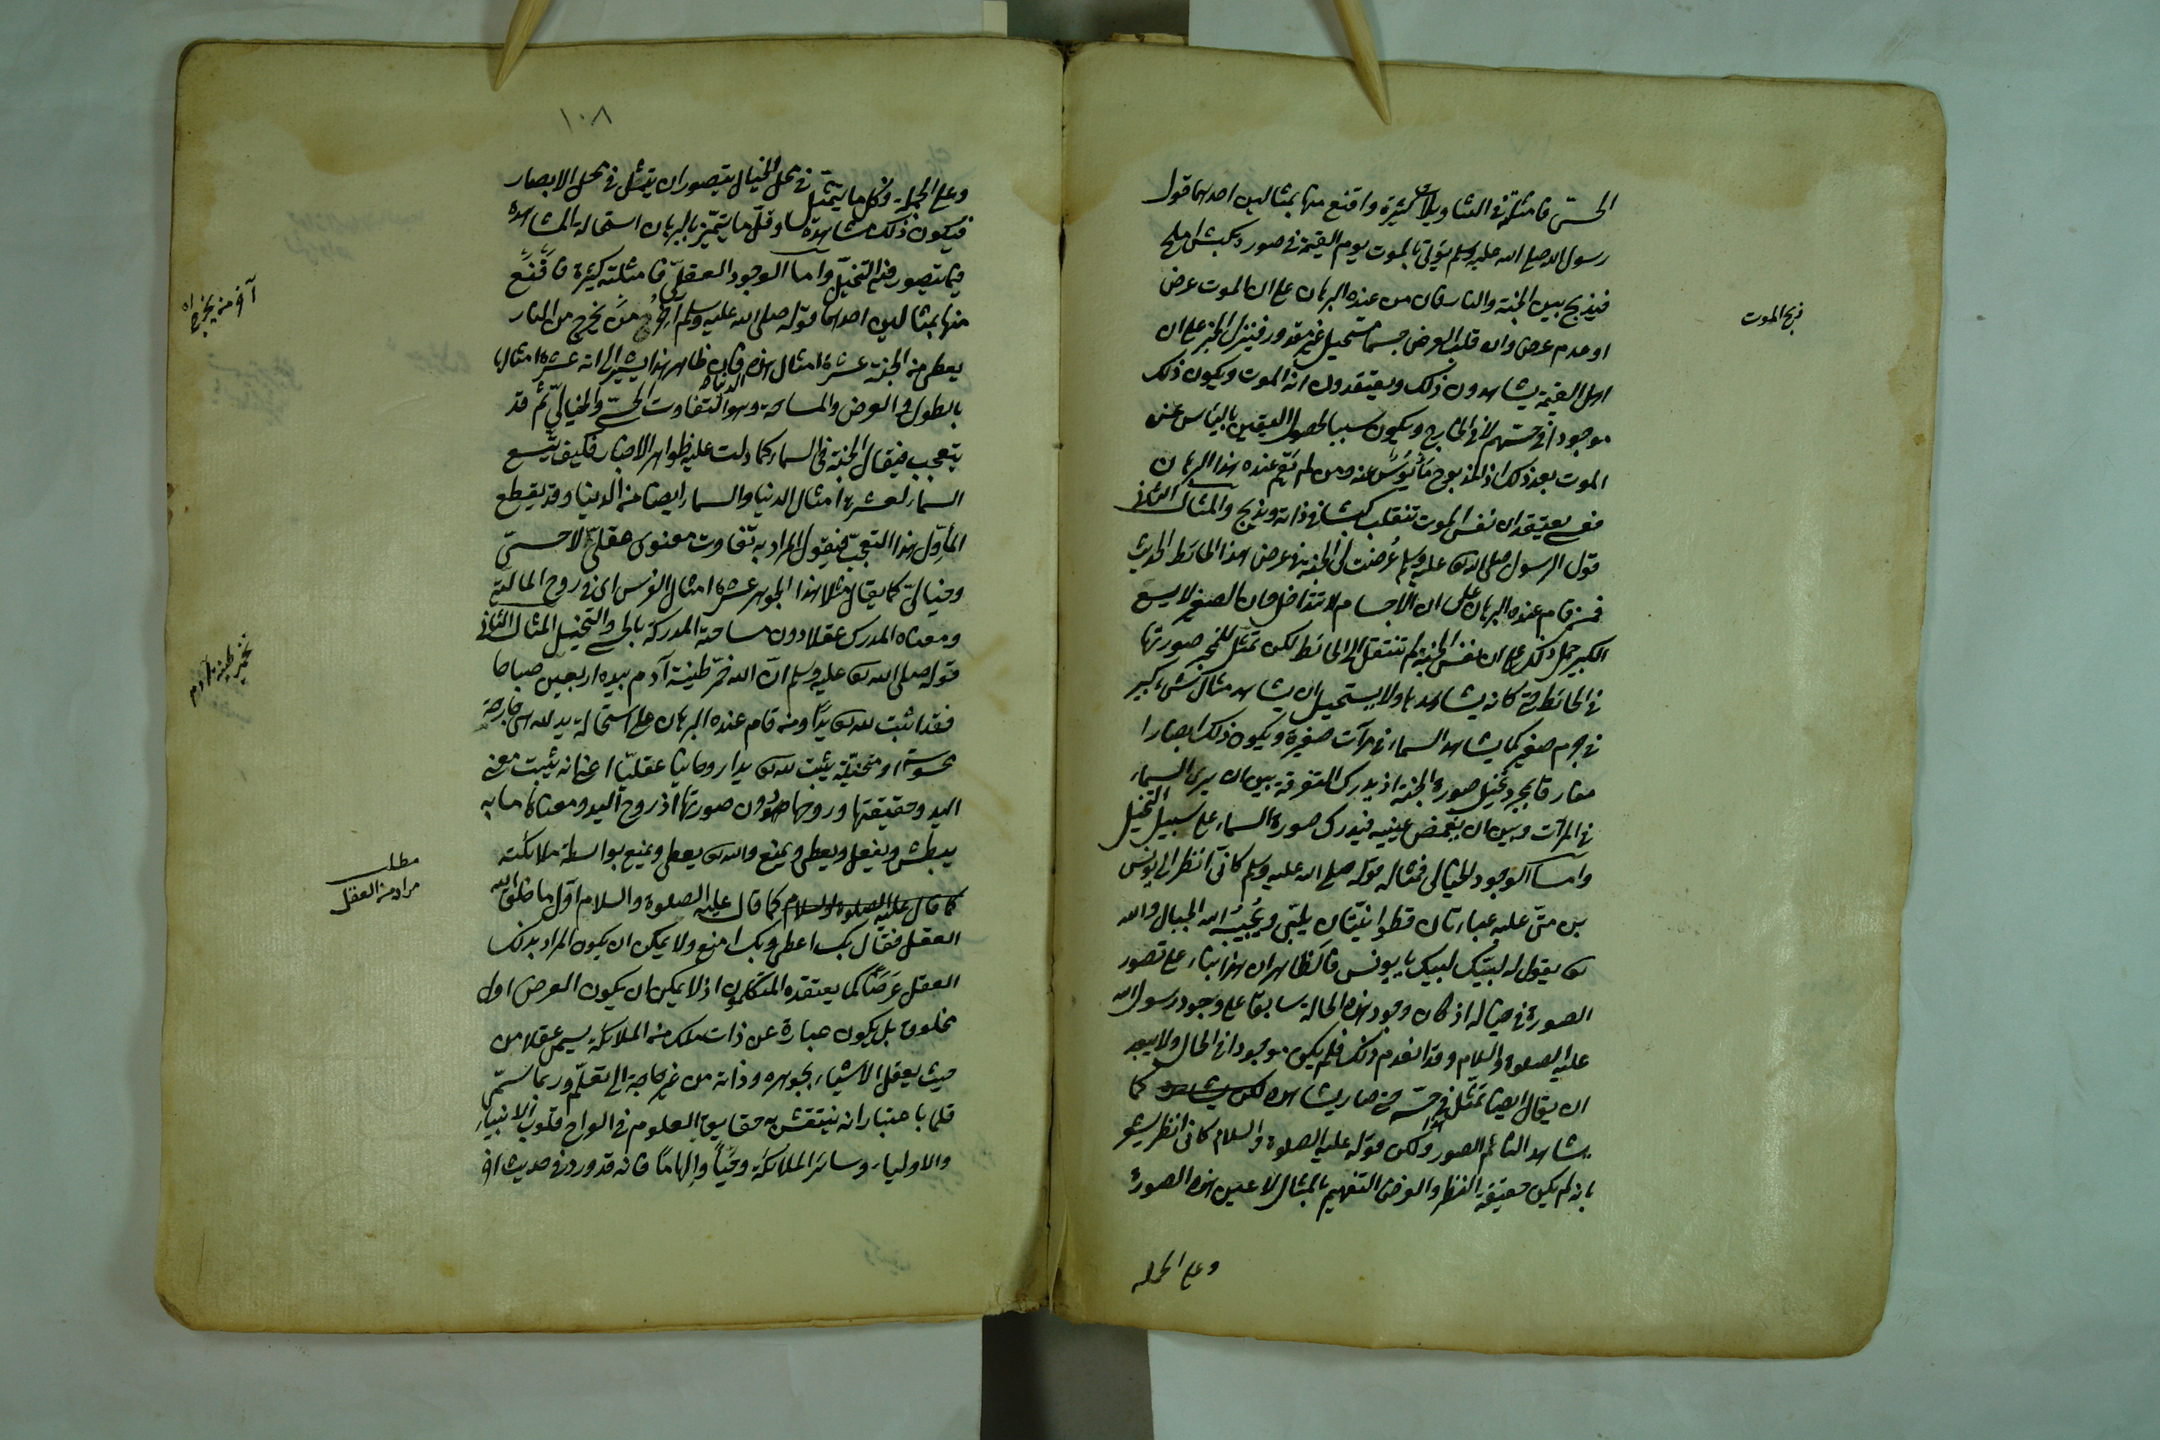 الحسّى فامثلته فى التاويلات كثيرة واقنع منها بمثالين احدهما قول
رسول الله صلى الله عليه وسلم يؤتى بالموت يوم القيمة فى صورة كبش املح
فيذبح بين الجنة والنار فان من عنده البرهان على ان الموت عرض
او عدم عرض وان قلب العرض جسما مستحيل غير مقدور فينزل الخبر على ان
اهل القيمة يشاهدون ذلك ويعتقدون انه الموت ويكون ذلك
موجودا فى حسّهم لا فى الخارج ويكون سببا لحصول اليقين بالياس عن
الموت بعد ذلك اذ المذبوح مأيُوسٌ عنه ومن لم يقم عنده هذا البرهان
فعسى يعتقد ان نفس الموت تنقلب كبشا فى ذاته ويذبح والمثال الثانى
قول الرسول صلى الله تعالى عليه وسلم عُرضت لى الجنة فى عرض هذا الحائط الحديث
فمن قام عنده البرهان على ان الاجسام لا تتداخل وان الصغير لا يسع
الكبير حمل ذلك على ان نفس الجنة لم تنتقل الى الحائط لكن تمثل للحس صورتها
فى الحائط حتى كانه يشاهدها ولا يستحيل ان يشاهد مثال شىء كبير
فى جرم صغير كما يشاهد السماء فى مرآت صغيرة ويكون ذلك ابصارا
مفارقا لمجرد تخيل صورة الجنة اذ يدرك التفرقة بين ان يرى السماء
فى المرآت وبين ان يغمض عينيه فيدرك صورة السماء على سبيل التخيل
وامّا الوجود الخيالى فمثاله قوله صلى الله عليه وسلم كانّى انظر الى يونس
بن متّى عليه عباءتان قطوانيّتان يلبّى ويُجيبُه الجبال والله
تعالى يقول له لبيّك لبيك يا يونس فالظاهر ان هذا بناء على تصور
الصورة فى خياله اذ كان وجود هذه الحالة سابقا على وجود رسول الله
عليه الصلوة والسلام وقد انعدم ذلك فلم يكن موجودا فى الحال ولا يبعد
ان يقال ايضا تمثل فى حسّه حتى صار يشاهده لكن يشاهده كما
يشاهد النائم الصور ولكن قوله عليه الصلوة والسلام كانى انظر يشعر
بانه لم يكن حقيقة النظر والغرض التفهيم بالمثال لا عين هذه الصورة
وعلى الجملة
ذبح الموت
١٠٨
وعلى الجملة وكل ما يتمثل فى محل الخيال يتصور ان يتمثل فى محل الابصار
فيكون ذلك مشاهدة وقلّ ما يتميّز بالبرهان استحالة المشاهدة
فيما يتصور فيه التخيّل واما الوجود العقلىّ فامثلته كثيرة فاقنع
منها بمثالين احدهما قوله صلى الله عليه وسلم آخر من يخرج من النار
يعطى من الجنة عشرة امثال هذه الدنيا فان ظاهر هذا يشير الى انه عشرة امثالها
بالطول والعرض والمساحة وهو التفاوت الحسّى والخيالىّ ثم قد
يتعجب فيقال الجنة فى السماء كما دلت عليه ظواهر الاخبار فكيف يتّسع
السماء لعشرة امثال الدنيا والسماء ايضا من الدنيا وقد يقطع
المأوّل هذا التعجّب فيقول المراد به تفاوت معنوى عقلىّ لا حسىّ
وخيالىّ كما يقال مثلا هذا الجوهر عشرة امثال الفرس اى فى روح المالية
ومعناه المدرك عقلا دون مساحته المدركة بالحس والتخيل المثال الثانى
قوله صلى الله تعالى عليه وسلم انّ الله خمّر طينة آدم بيده اربعين صباحا
فقد اثبت لله تعالى يدًا ومن قام عنده البرهان على استحالة يد لله هى جارحة
محسوسة او متخيّلة يثبت لله تعالى يدا روحانيّا عقليّا اعنى انه يثبت معنى
اليد وحقيقتها وروحها دون صورتها اذ روح اليد ومعناها ما به
يبطش ويفعل ويعطى ويمنع والله تعالى يعطى ويمنع بواسطة ملائكته
كما قال عليه الصلوة والسلام كما قال عليه الصلوة والسلام اوّل ما خلق الله
العقل فقال بك اعطى وبك امنع ولا يمكن ان يكون المراد بذلك
العقل عَرَضًا كما يعتقده المتكلمون اذ لا يمكن ان يكون العرض اول
مخلوق بل يكون عبارة عن ذات ملك من الملائكة يسمى عقلا من
حيث يعقل الاشياء بجوهره وذاته من غير حاجة الى تعلّم وربما سمّى
قلما باعتبار انه ينتقش به حقايق العلوم فى الواح قلوب الانبياء
والاولياء وسائر الملائكة وَحْيًا وإلهامًا فانه قد ورد فى حديث آخر
آخر من يخرج
تخمير طينة آدم
مطلب
مراد من العقل